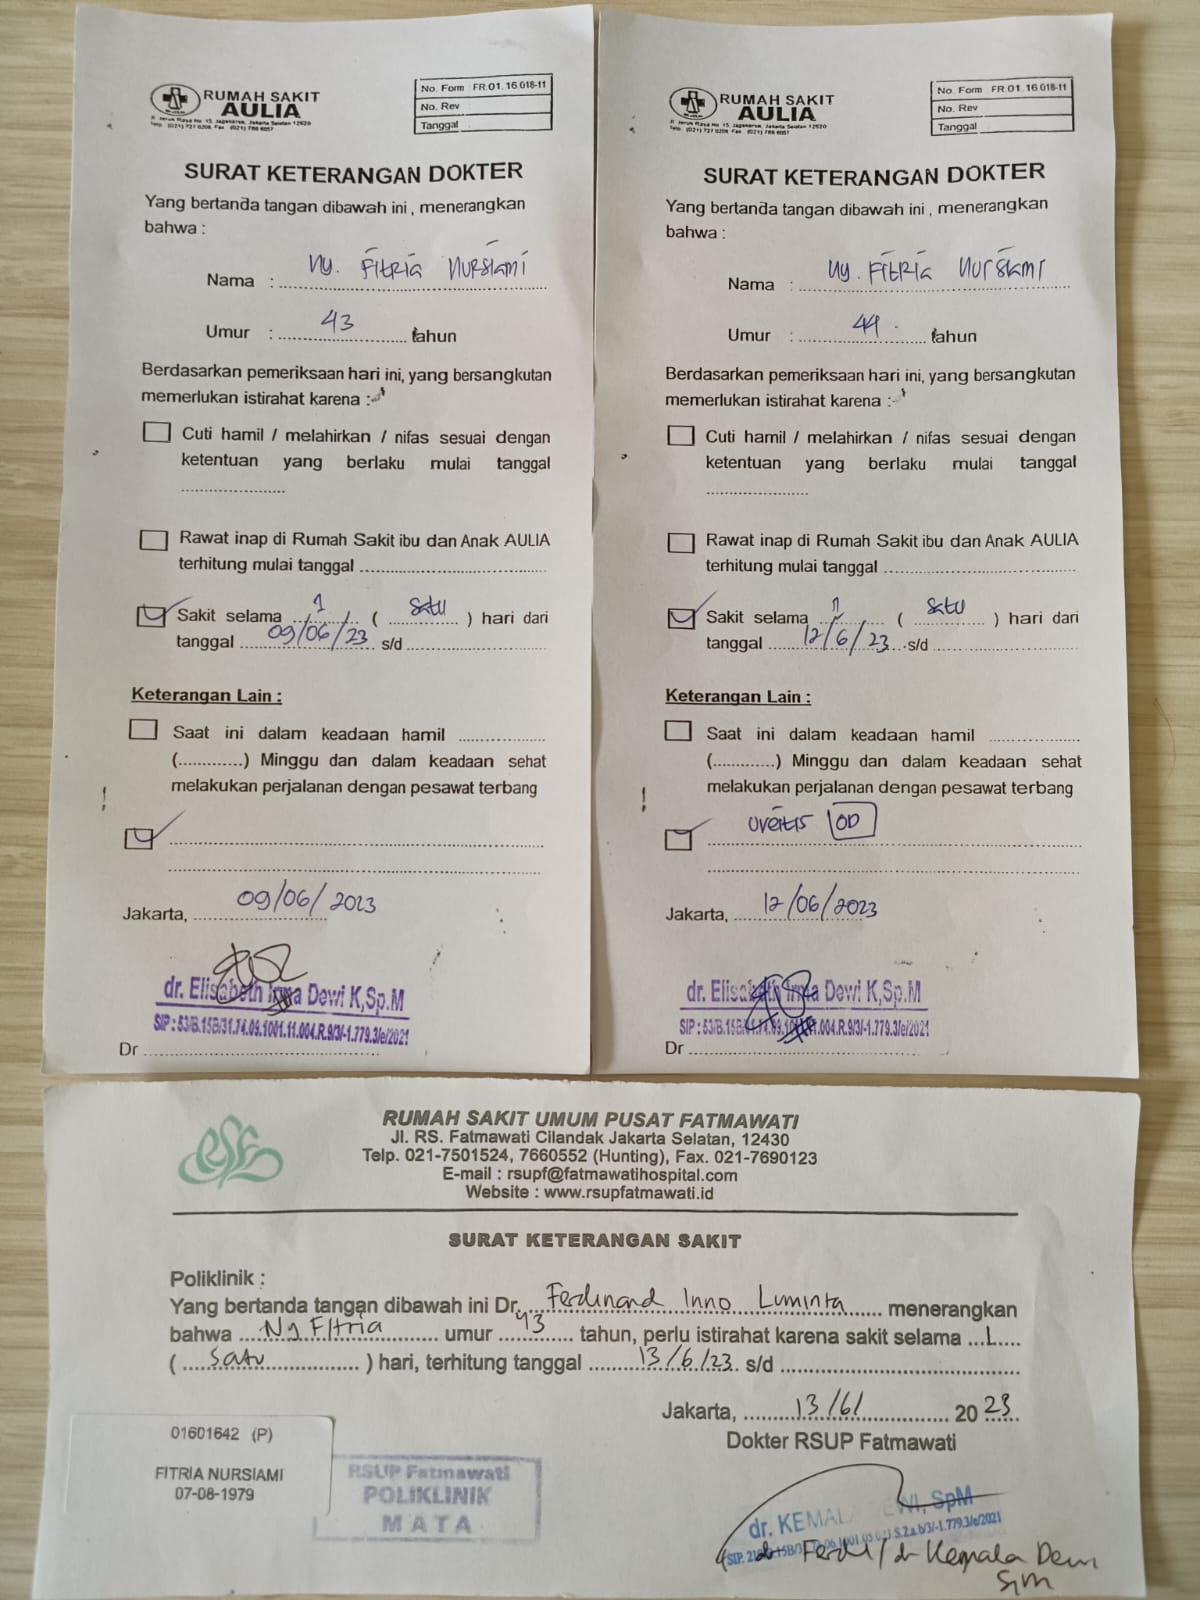 RUMAH SAKIT
AULIA
Jl. Jeruk Raya No. 15, Jagakarsa, Jakarta Selatan 12620
Telp. (021) 727 0208, Fax. (021) 786 6057
No. Form FR.01.16.018-11
No. Rev
Tanggal
SURAT KETERANGAN DOKTER
Yang bertanda tangan dibawah ini, menerangkan
bahwa :
Nama : Ny. Fitria Nursiami
Umur : 43 tahun
Berdasarkan pemeriksaan hari ini, yang bersangkutan
memerlukan istirahat karena :
Cuti hamil / melahirkan / nifas sesuai dengan
ketentuan yang berlaku mulai tanggal
Rawat inap di Rumah Sakit ibu dan Anak AULIA
terhitung mulai tanggal
Sakit selama 1 ( Satu ) hari dari
tanggal 09/06/23 s/d
Keterangan Lain :
Saat ini dalam keadaan hamil
(............) Minggu dan dalam keadaan sehat
melakukan perjalanan dengan pesawat terbang
Jakarta, 09/06/2023
dr. Elisabeth Irma Dewi K,Sp.M
SIP : 53/B.15B/31.74.09.1001.11.004.R.9/3/-1.779.3/e/2021
Dr
RUMAH SAKIT
AULIA
Jl. Jeruk Raya No. 15, Jagakarsa, Jakarta Selatan 12620
Telp. (021) 727 0208, Fax. (021) 786 6057
No. Form FR.01.16.018-11
No. Rev
Tanggal
SURAT KETERANGAN DOKTER
Yang bertanda tangan dibawah ini, menerangkan
bahwa :
Nama : Ny. Fitria Nursiami
Umur : 44 tahun
Berdasarkan pemeriksaan hari ini, yang bersangkutan
memerlukan istirahat karena :
Cuti hamil / melahirkan / nifas sesuai dengan
ketentuan yang berlaku mulai tanggal
Rawat inap di Rumah Sakit ibu dan Anak AULIA
terhitung mulai tanggal
Sakit selama 1 ( Satu ) hari dari
tanggal 12/6/23 s/d
Keterangan Lain :
Saat ini dalam keadaan hamil
(............) Minggu dan dalam keadaan sehat
melakukan perjalanan dengan pesawat terbang
Uveitis OD
Jakarta, 12/06/2023
dr. Elisabeth Irma Dewi K,Sp.M
SIP : 53/B.15B/31.74.09.1001.11.004.R.9/3/-1.779.3/e/2021
Dr
RSF
RUMAH SAKIT UMUM PUSAT FATMAWATI
Jl. RS. Fatmawati Cilandak Jakarta Selatan, 12430
Telp. 021-7501524, 7660552 (Hunting), Fax. 021-7690123
E-mail : rsupf@fatmawatihospital.com
Website : www.rsupfatmawati.id
SURAT KETERANGAN SAKIT
Poliklinik :
Yang bertanda tangan dibawah ini Dr. Ferdinand Inno Luminta menerangkan
bahwa Ny Fitria umur 43 tahun, perlu istirahat karena sakit selama 1
( Satu ) hari, terhitung tanggal 13/6/23 s/d
Jakarta, 13/6/ 2023
Dokter RSUP Fatmawati
01601642 (P)
FITRIA NURSIAMI
07-08-1979
RSUP Fatmawati
POLIKLINIK
MATA
dr. KEMALA DEWI, SpM
dr Ferdi / dr Kemala Dewi
SpM